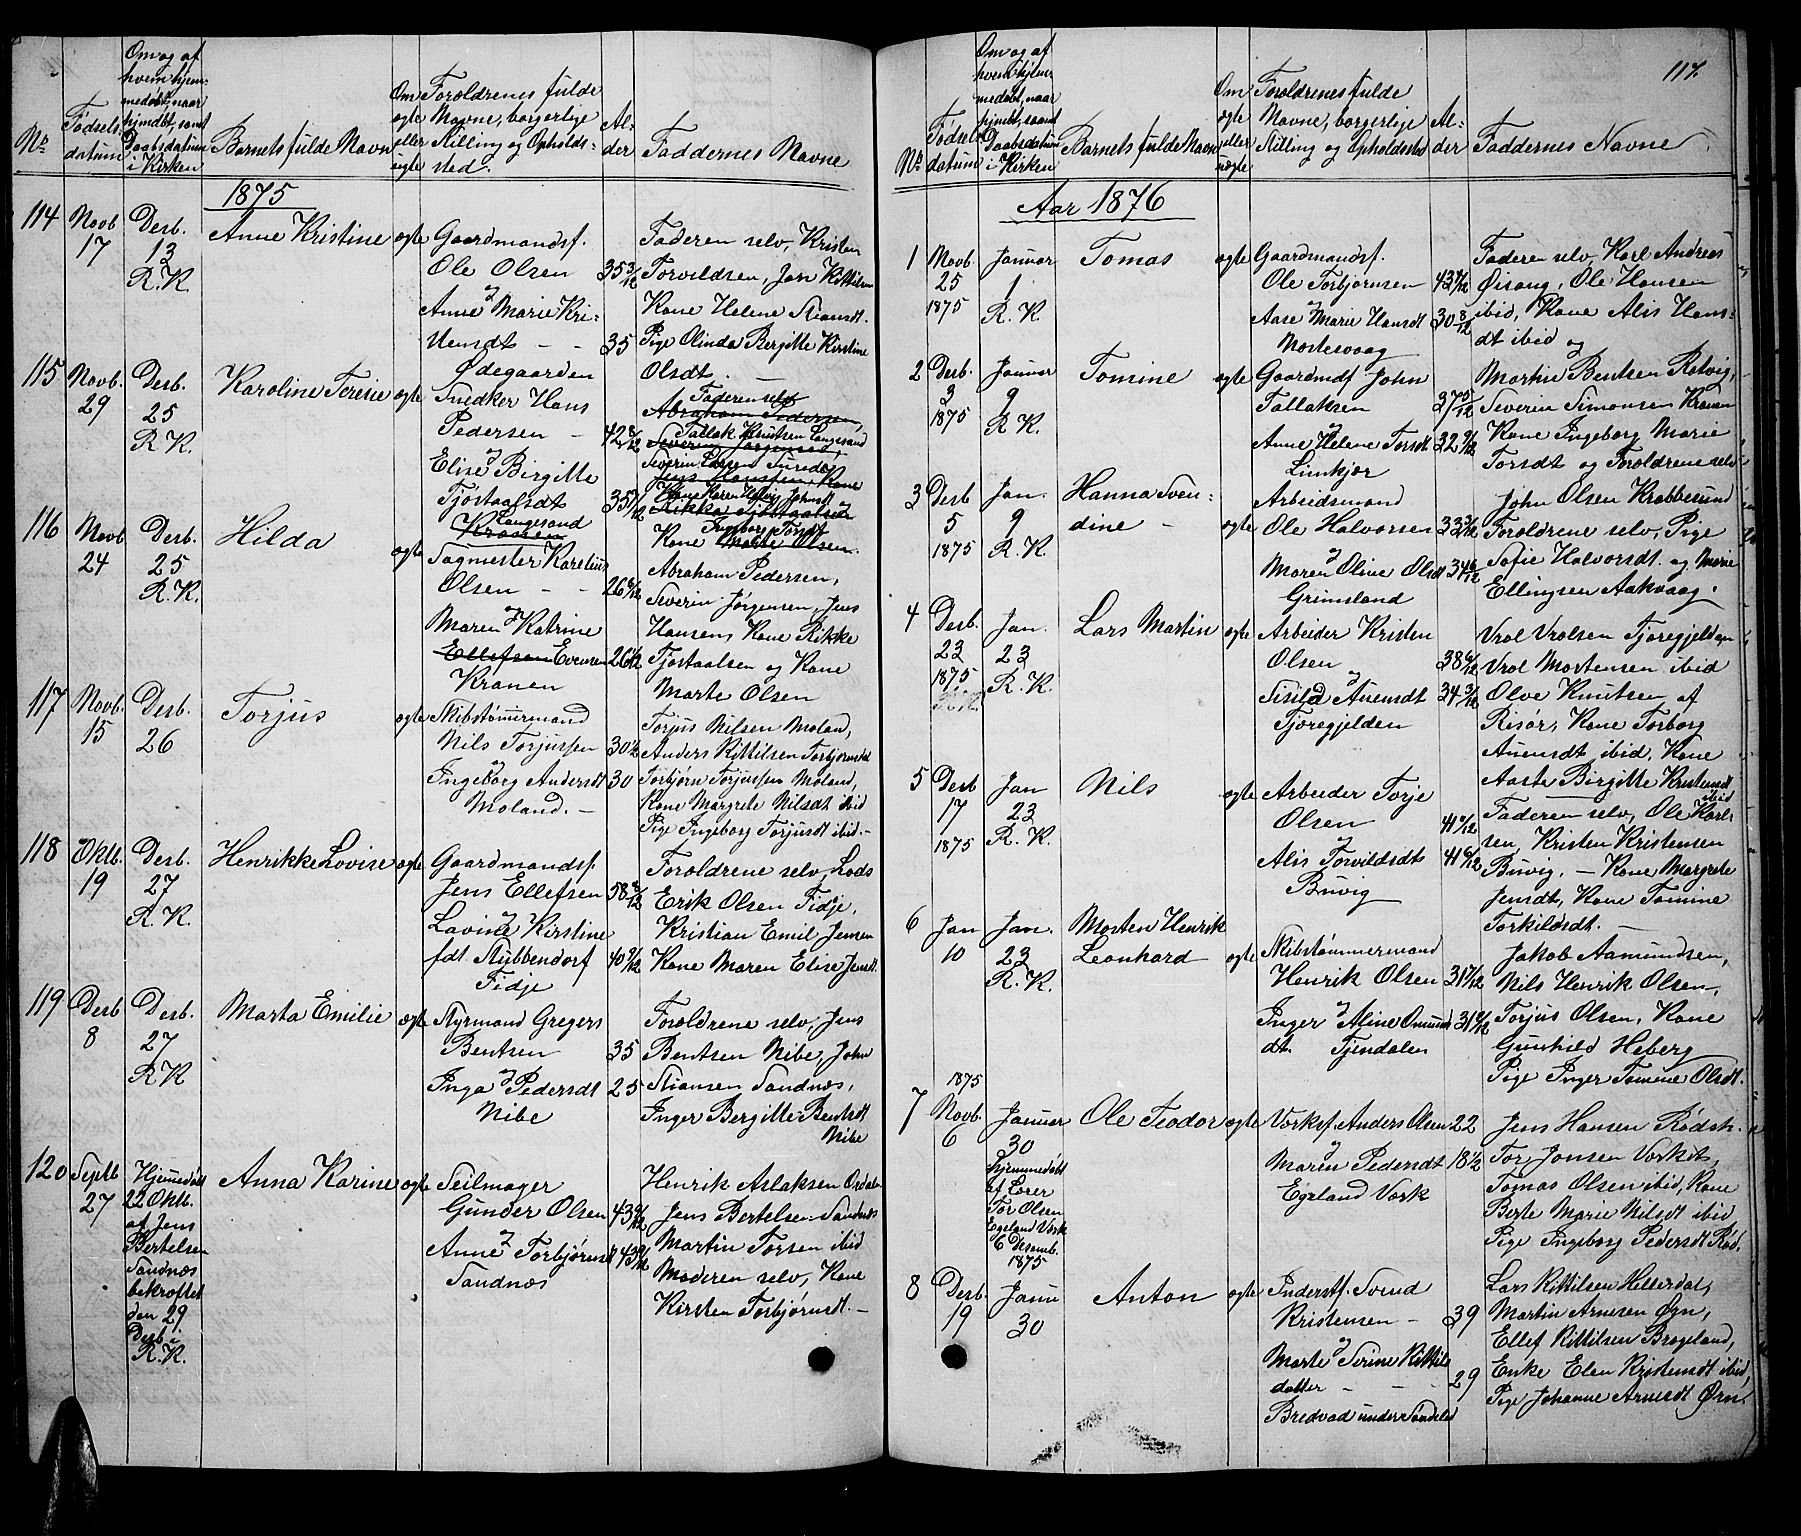 117.
Nr.
Fødsels-
datum
Om og af
hvem hjem-
medøbt, naar
hjmdbt, samt
Daabsdatum
i Kirken
Barnets fulde Navn
Om
ægte
eller
uægte
Forældrenes fulde
Navne, borgerlige
Stilling og Opholds-
sted.
Al-
der
Faddernes Navne
1875
114
Novb
17
Desb.
13
R.K.
Anne Kristine
ægte
Gaardmandsf.
Ole Olsen 35 3/12
og
Anne Marie Kri-
stensdt - - 35
Ødegaarden
Faderen selv, Kristen
Torvildsen, Jon Kittilsen
Kone Helene Stiansdt.
Pige Olinda Bergitte Kirstine
Olsdt.
115
Novb.
29
Desb.
25
R.K.
Karoline Teresie
ægte
Snedker Hans
Pedersen - 42 8/12
og
Elise Birgitte
Tjostaalsdt 35 7/12
Langesand
Kranen
Faderen selv
Abraham Pedersen,
Tallak Knutsen Langesand
Severin Jørgensen,
Severin Larsen
Jens Hansens Kone
Kone Karen Helvig Johnsdt
Rikke Tjostaalsen
Ingeborg Torsdt
Kone Marte Olsen.
116
Novb
24
Desb.
25
R.K.
Hilda
ægte
Sagmester Karelius
Olsen - - 26 6/12
og
Maren Katrine
Ellefsen Evensen 26 1/2
Kranen
Abraham Pedersen,
Severin Jørgensen, Jens
Hansens Kone Rikke
Tjostaalsen og Kone
Marte Olsen
117
Novb.
15
Desb.
26
Torjus
ægte
Skibstømermand
Nils Torjussen 30 1/2
og
Ingeborg Andersdt 30
Moland. -
Torjus Nilsen Moland,
Anders Kittilsen Torbjørnsdal
Torbjørn Torjussen Moland,
Kone Margrete Nilsdt ibid
Pige Ingeborg Torjusdt ibid. -
118
Oktb.
19
Desb.
27
R.K.
Henrikke Lovise
ægte
Gaardmandsf.
Jens Ellefsen 58 8/12
og
Lavine Kirstine
fdt Stubbendorf 40 9/12
Fidje
Forældrene selv, Lods
Erik Olsen Fidje,
Kristian Emil Jensen
Kone Maren Elise Jensdt.
119
Desb
8
Desb.
27
R.K
Marta Emilie
ægte
Styrmand Gregers
Bentsen 35
og
Inga Pedersdt 25
Nibe
Forældrene selv, Jens
Bentsen Nibe, John
Stiansen Sandnæs,
Inger Bergitte Bentsdt
Nibe
120
Septb
27
Hjemedøbt
22 Oktb.
af Jens
Bertelsen
Sandnæs
bekræftet
den 29
Desb i
R.K.
Anna Karine
ægte
Seilmager
Gunder Olsen 43 9/12
og
Anne Torbjørnsdt 43 9/12
Sandnæs
Henrik Aslaksen Ørdalen
Jens Bertelsen Sandnæs
Martin Torsen ibid
Moderen selv, Kone
Kirsten Torbjørnsdt. -
Nr.
Fødsels
datum
Om og af
hvem hjem-
medøbt, naar
hjmdbt, samt
Daabsdatum
i Kirken
Barnets fulde Navn
Om
ægte
eller
uægte
Forældrenes fulde
Navne, borgerlige
Stilling og Opholdssted
Al-
der
Faddernes Navne
Aar 1876
1
Novb.
25
1875
Januar
1
R.K.
Tomas
ægte
Gaardmandsf.
Ole Torbjørnsen 43 9/12
og
Aase Marie Hansdt 30 8/12
Mostervaag
Faderen selv, Karl Andreas
Øisang, Ole Hansen
ibid, Kone Alis Hans-
dt ibid og
2
Desb.
3
1875
Januar
9
R.K.
Tomine
ægte
Gaardmdsf John
Tallaksen 37 5/12
og
Anne Helene Torsdt 32 9/12
Limkjær
Martin Bentsen Retvig,
Severin Simonsen Kranen
Kone Ingeborg Marie
Torsdt og Forældrene selv
3
Desb
5
1875
Jan.
9
R.K.
Hanna Sven-
dine -
ægte
Arbeidsmand
Ole Halvorsen 33 3/12
og
Maren Oline Olsdt 34 6/12
Grimsland
John Olsen Krabbesund
Forældrene selv, Pige
Sofie Halvorsdt. og Marie
Ellingsen Aakvaag.
4
Desb.
23
1875
Jan.
23
R.K.
Lars Martin
ægte
Arbeider Kristen
Olsen 38 6/12
og
Sisild Auensdt 34 3/12
Tjøregjelden
Vrol Vrolsen Tjøregjelden,
Vrol Mortensen ibid
Olve Knutsen af
Risør, Kone Torborg
Auensdt ibid, Kone
Aaste Birgitte Kristensdt
ibid
5
Desb
17
1875
Jan
23
R.K.
Nils
ægte
Arbeider Torje
Olsen 41 9/12
og
Alis Torvildsdt 41 6/12
Buvig
Faderen selv, Ole Karl-
sen, Kristen Kristensen
Buvig. - Kone Margrete
Jensdt, Kone Tomine
Torkildsdt. -
6
Jan
10
Jan.
23
R.K.
Morten Henrik
Leonhard -
ægte
Skibstømmermand
Henrik Olsen 31 7/12
og
Inger Aline Omund 31 9/12
dt. Tjendalen
Jakob Aamundsen,
Nils Henrik Olsen,
Torjus Olsen, Kone
Gunhild Heberg
Pige Inger Tomine Olsdt.
7
1875
Novb.
6
Januar
30
hjemmedøbt
af Lærer
Tor Olsen
Egeland Værk
6 Desemb.
1875
Ole Teodor
ægte
Værksf. Anders Olsen 22
og
Maren Pedersdt 18 1/2
Egeland Værk
Jens Hansen Rødsk.
Tor Jonsen Værket,
Tomas Olsen ibid, Kone
Berte Marie Nilsdt ibid
Pige Ingeborg Pedersdt Rød.
8
Desb.
19
Janu
30
Anton
ægte
Inderstf. Svend
Kristensen - 39
og
Marte Serine Kittils
datter - - 29
Bredvad under Søndeled
Lars Kittilsen Hellerdal,
Martin Arnesen Øyn,
Ellef Kittilsen Brøgeland,
Enke Elen Kristensdt ibid,
Pige Johanne Arnesdt Øyn.